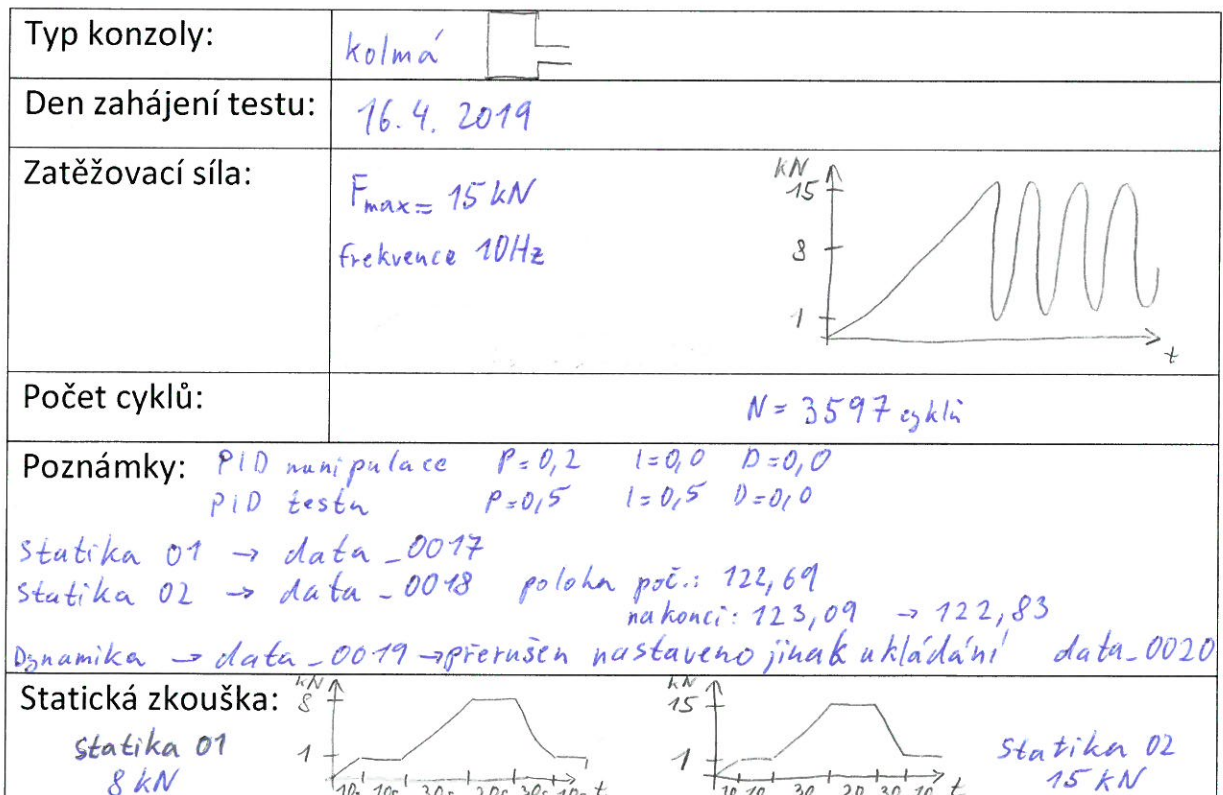 Typ konzoly: kolmá
Den zahájení testu: 16.4. 2019
Zatěžovací síla: Fmax = 15 kN
frekvence 10Hz
kN
15
8
1
t
Počet cyklů: N = 3597 cyklů
Poznámky: PID manipulace P=0,2 I=0,0 D=0,0
PID testu P=0,5 I=0,5 D=0,0
Statika 01 → data_0017
Statika 02 → data_0018 poloha poč.: 122,69
na konci: 123,09 → 122,83
Dynamika → data_0019 → přerušen nastaveno jinak ukládání data_0020
Statická zkouška:
Statika 01
8 kN
kN
8
1
10s 10s 30s 20s 30s 10s t
kN
15
1
10 10 30 20 30 10 t
Statika 02
15 kN